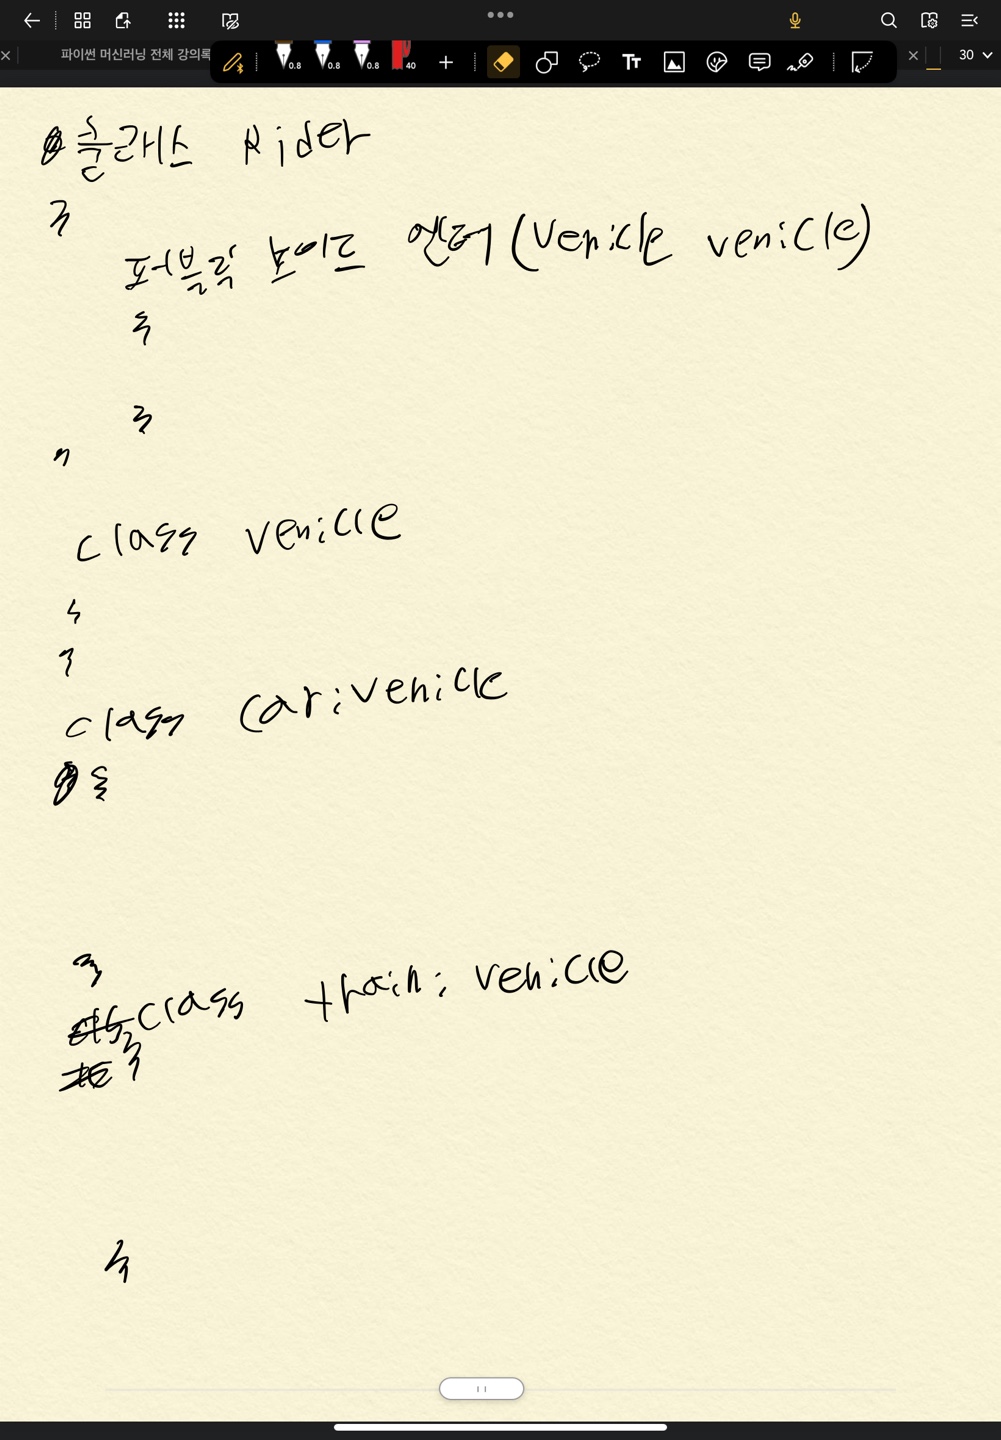 파이썬 머신러닝 전체 강의록
0.8 0.8 0.8 40 Tт 30
클래스 Rider
{
퍼블릭 보이드 엔터(Vehicle vehicle)
{
}
}
class vehicle
{
}
class car:vehicle
{
}
class train: vehicle
{
}